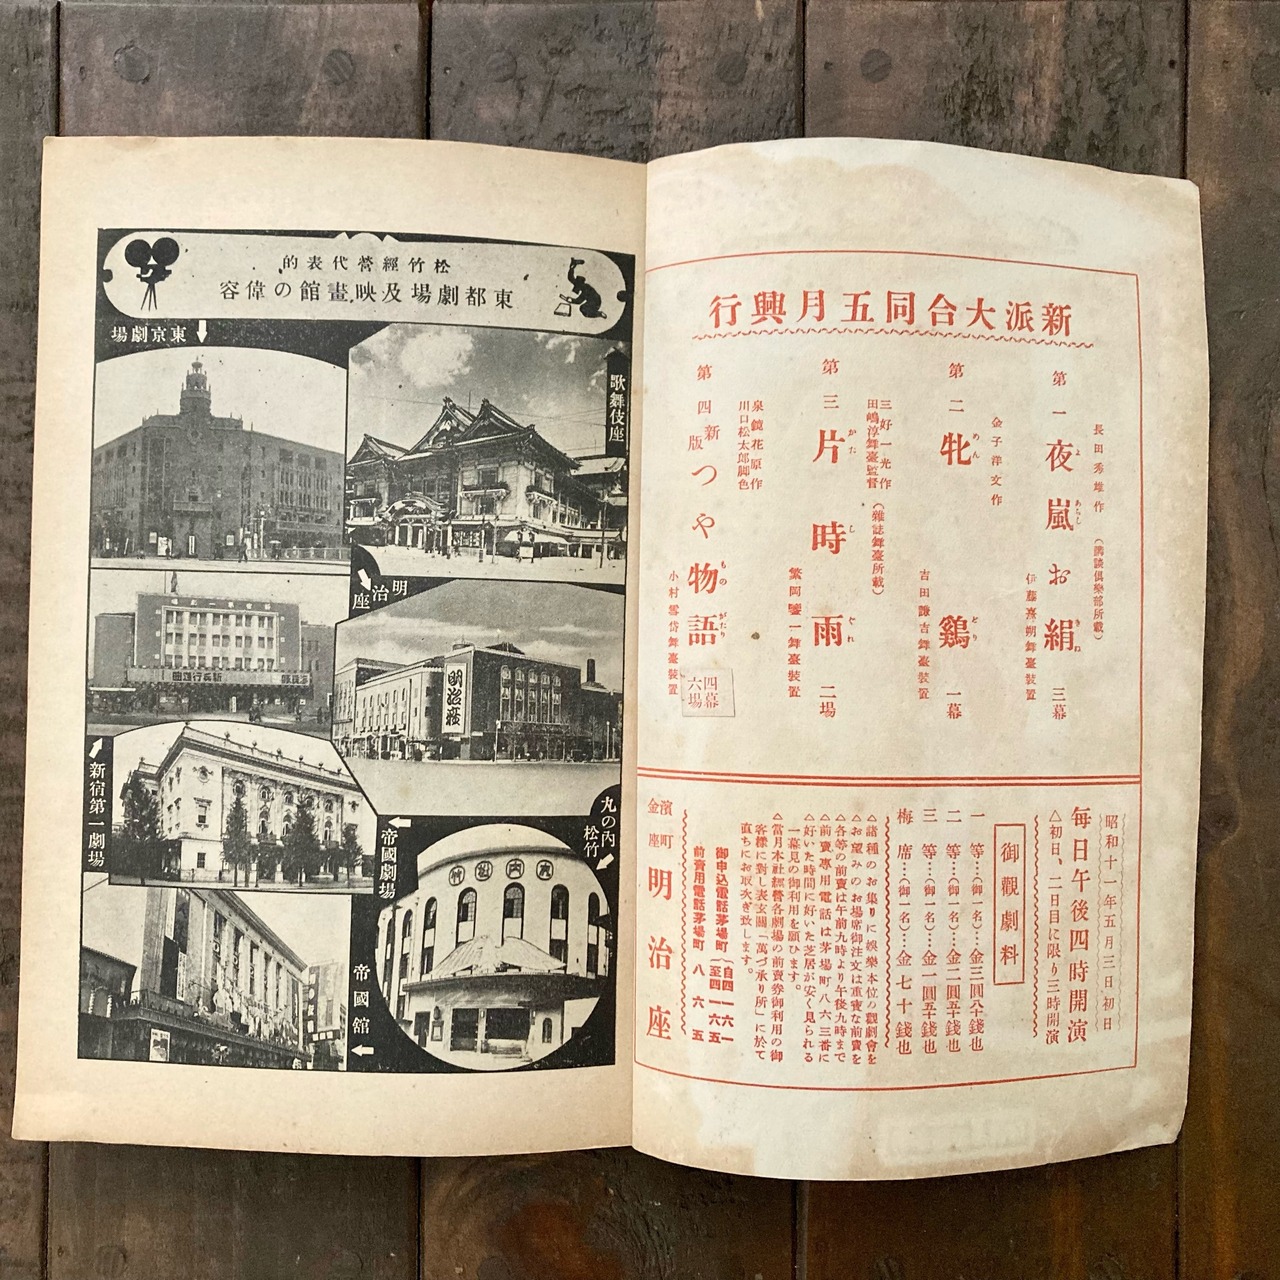 新派大合同五月興行
長田秀雄作
(講談倶樂部所載)
第一 夜嵐お絹 三幕
よ あらし きぬ
伊藤熹朔舞臺裝置
金子洋文作
第二 牝鷄 一幕
めん どり
吉田謙吉舞臺裝置
三好一光作
田嶋淳舞臺監督
(雜誌舞臺所載)
第三 片時雨 二場
かた し ぐれ
繁岡鑒一舞臺裝置
泉鏡花原作
川口松太郎脚色
第四 新版 つや物語
もの がたり
四幕
六場
小村雪岱舞臺裝置
昭和十一年五月三日初日
每日午後四時開演
△初日、二日目に限り三時開演
御觀劇料
一等…(御一名)…金三圓八十錢也
二等…(御一名)…金二圓五十錢也
三等…(御一名)…金一圓五十錢也
梅席…(御一名)…金七十錢也
△諸種のお集りに娛樂本位の觀劇會を
△お望みのお場席御注文は重寶な前賣を
△各等の前賣は午前九時より午後九時まで
△前賣專用電話は茅場町八六三番に
△好いた時間に好いた芝居が安く見られる
一幕見の御利用を願ひます。
△當月本社經營各劇場の前賣券御利用の御
客樣に對し表玄關「萬づ承り所」に於て
直ちにお取次ぎ致します。
御申込電話茅場町(自四一六一
至四一六五)
前賣用電話茅場町 八六五
濱町
金座
明治座
松竹經營代表的
東都劇場及映畫館の偉容
東京劇場
歌舞伎座
明治座
明治座
新宿第一劇場
帝國劇場
丸の內松竹
丸內松竹
帝國館